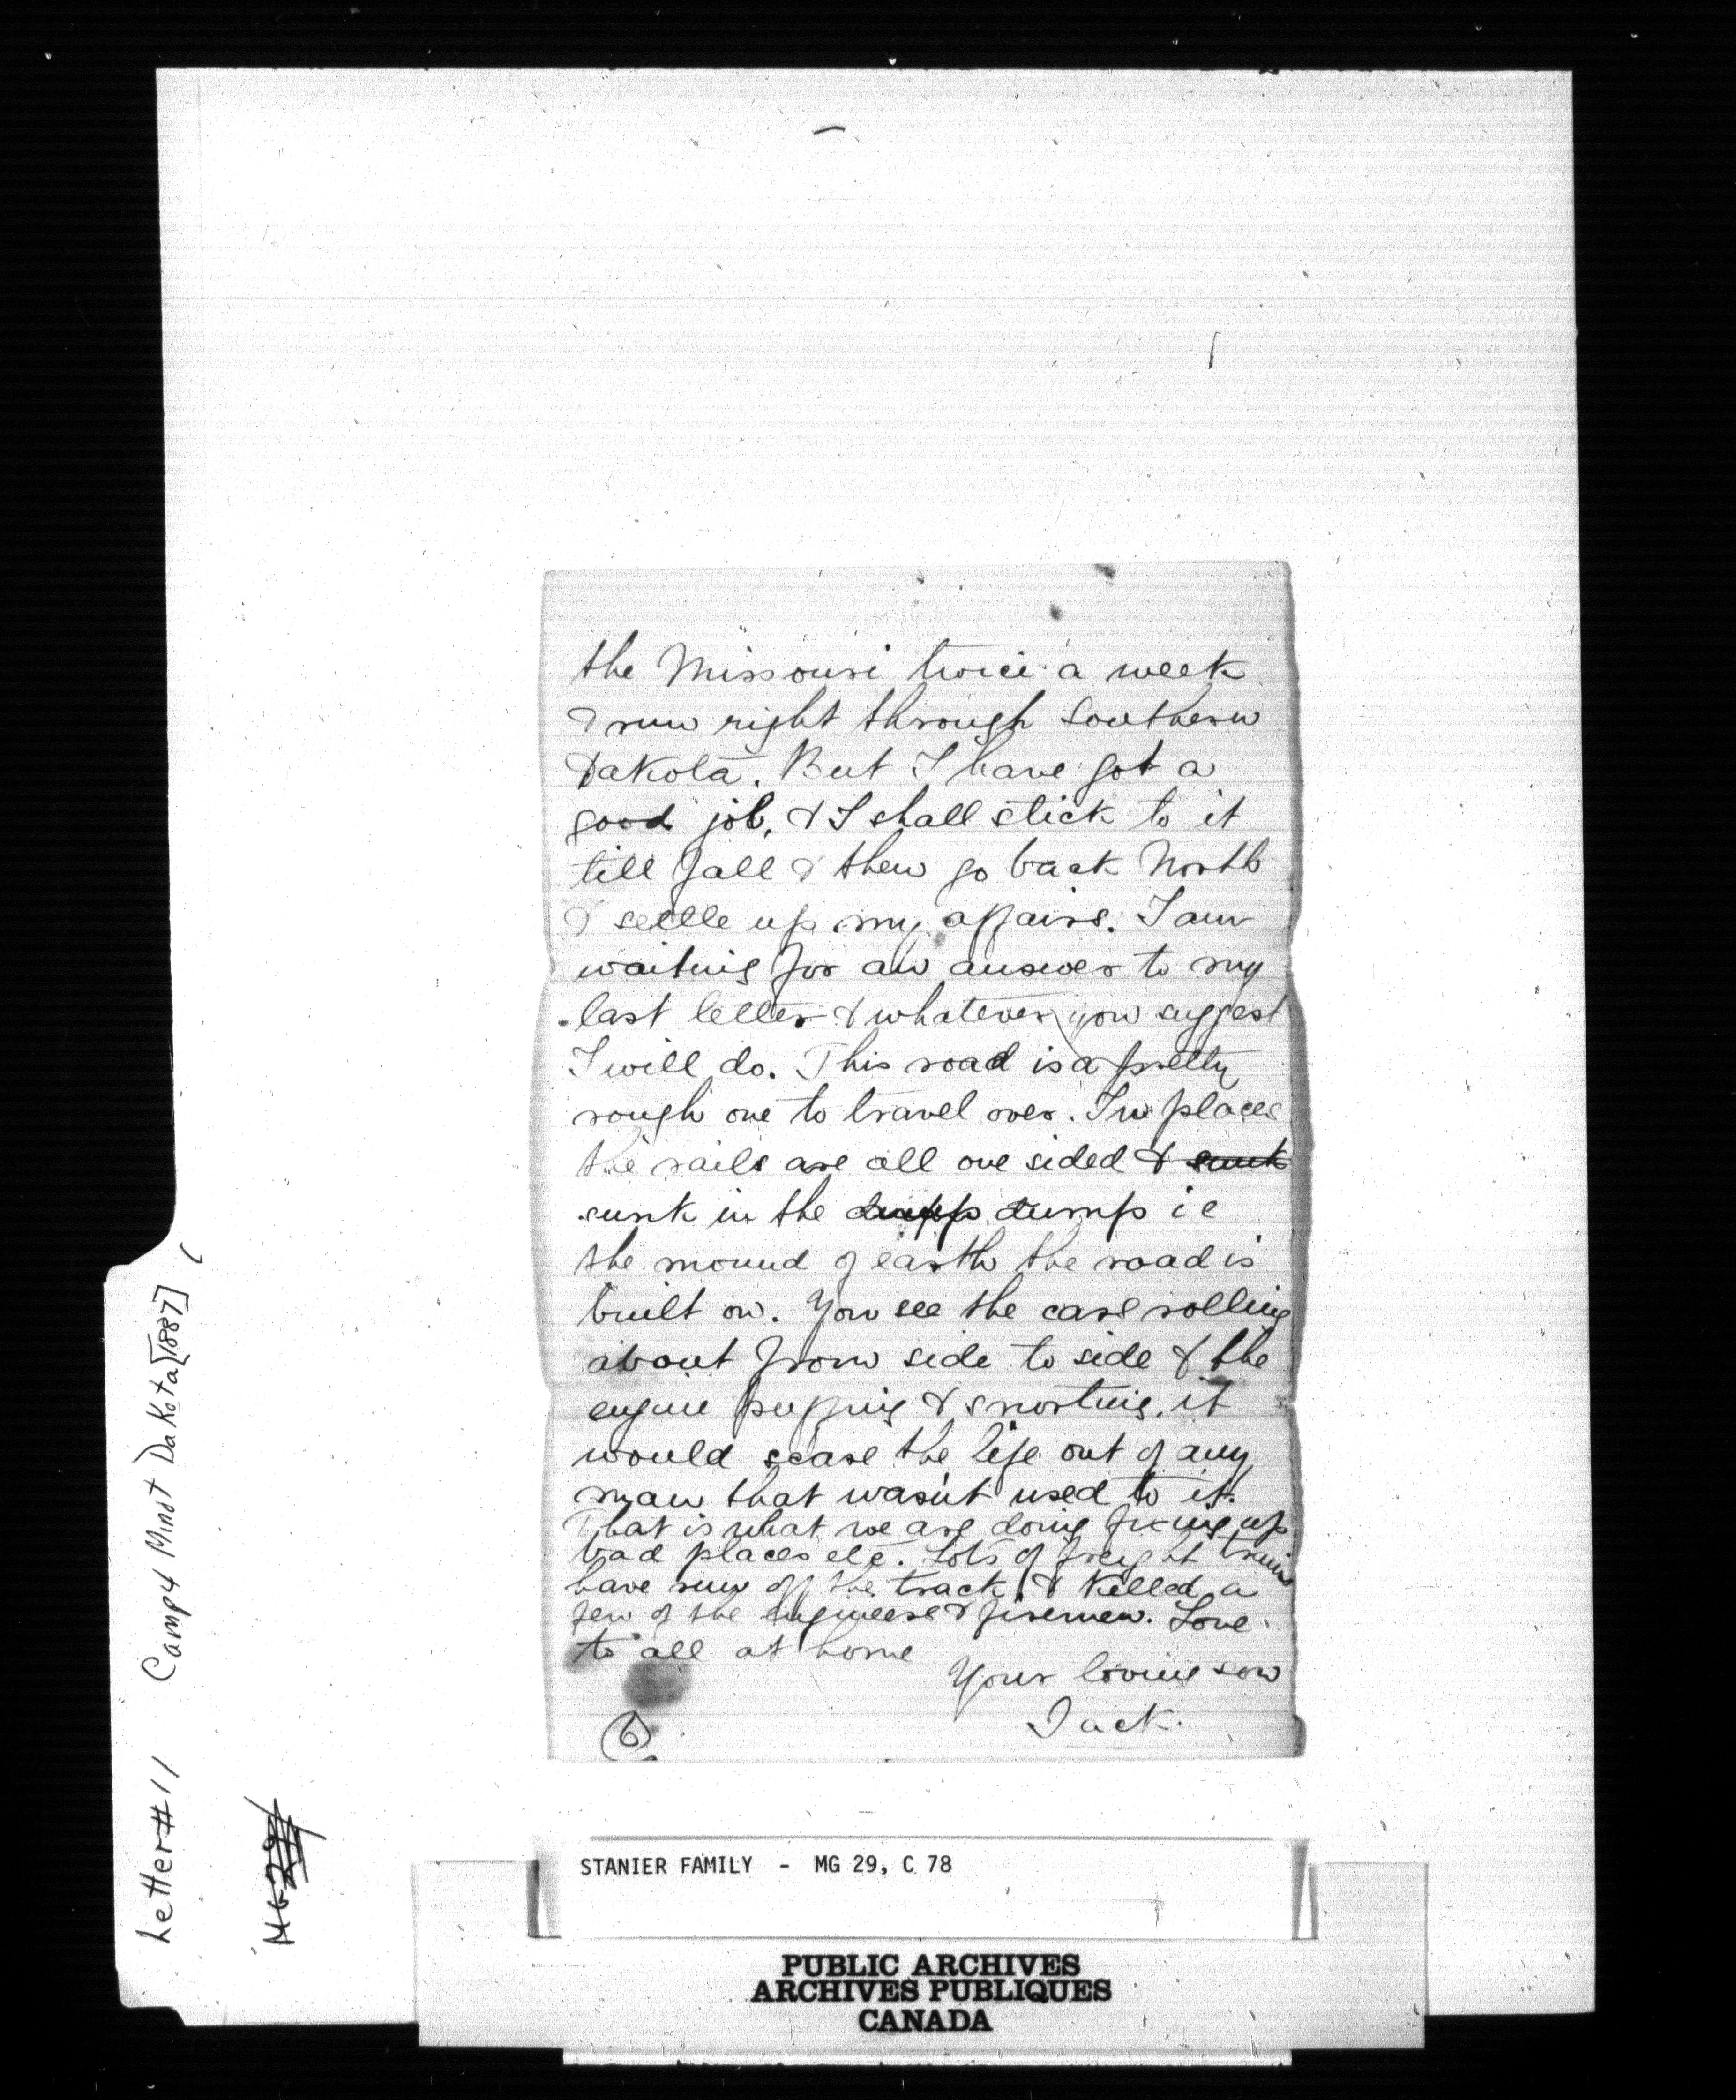 the Missouri twice a week
& run right through Southern
Dakota. But I have got a
good job, & I shall stick to it
till fall & then go back North
& settle up my affairs. I am
waiting for an answer to my
last letter & whatever you suggest
I will do. This road is a pretty
rough one to travel over. In places
the rails are all one sided & sunk
sunk in the dupp dump ie
the mound of earth the road is
built on. You see the cars rolling
about from side to side & the
engine puffing & snorting, it
would scare the life out of any
man that wasn't used to it.
That is what we are doing fixing up
bad places etc. Lots of freight trains
have run off the track & killed a
few of the engineers & firemen. Love
to all at home
Your loving son
Jack.
6
Letter # 11 Camp 4 Minot Dakota [1887]
MG 29
STANIER FAMILY - MG 29, C 78
PUBLIC ARCHIVES
ARCHIVES PUBLIQUES
CANADA